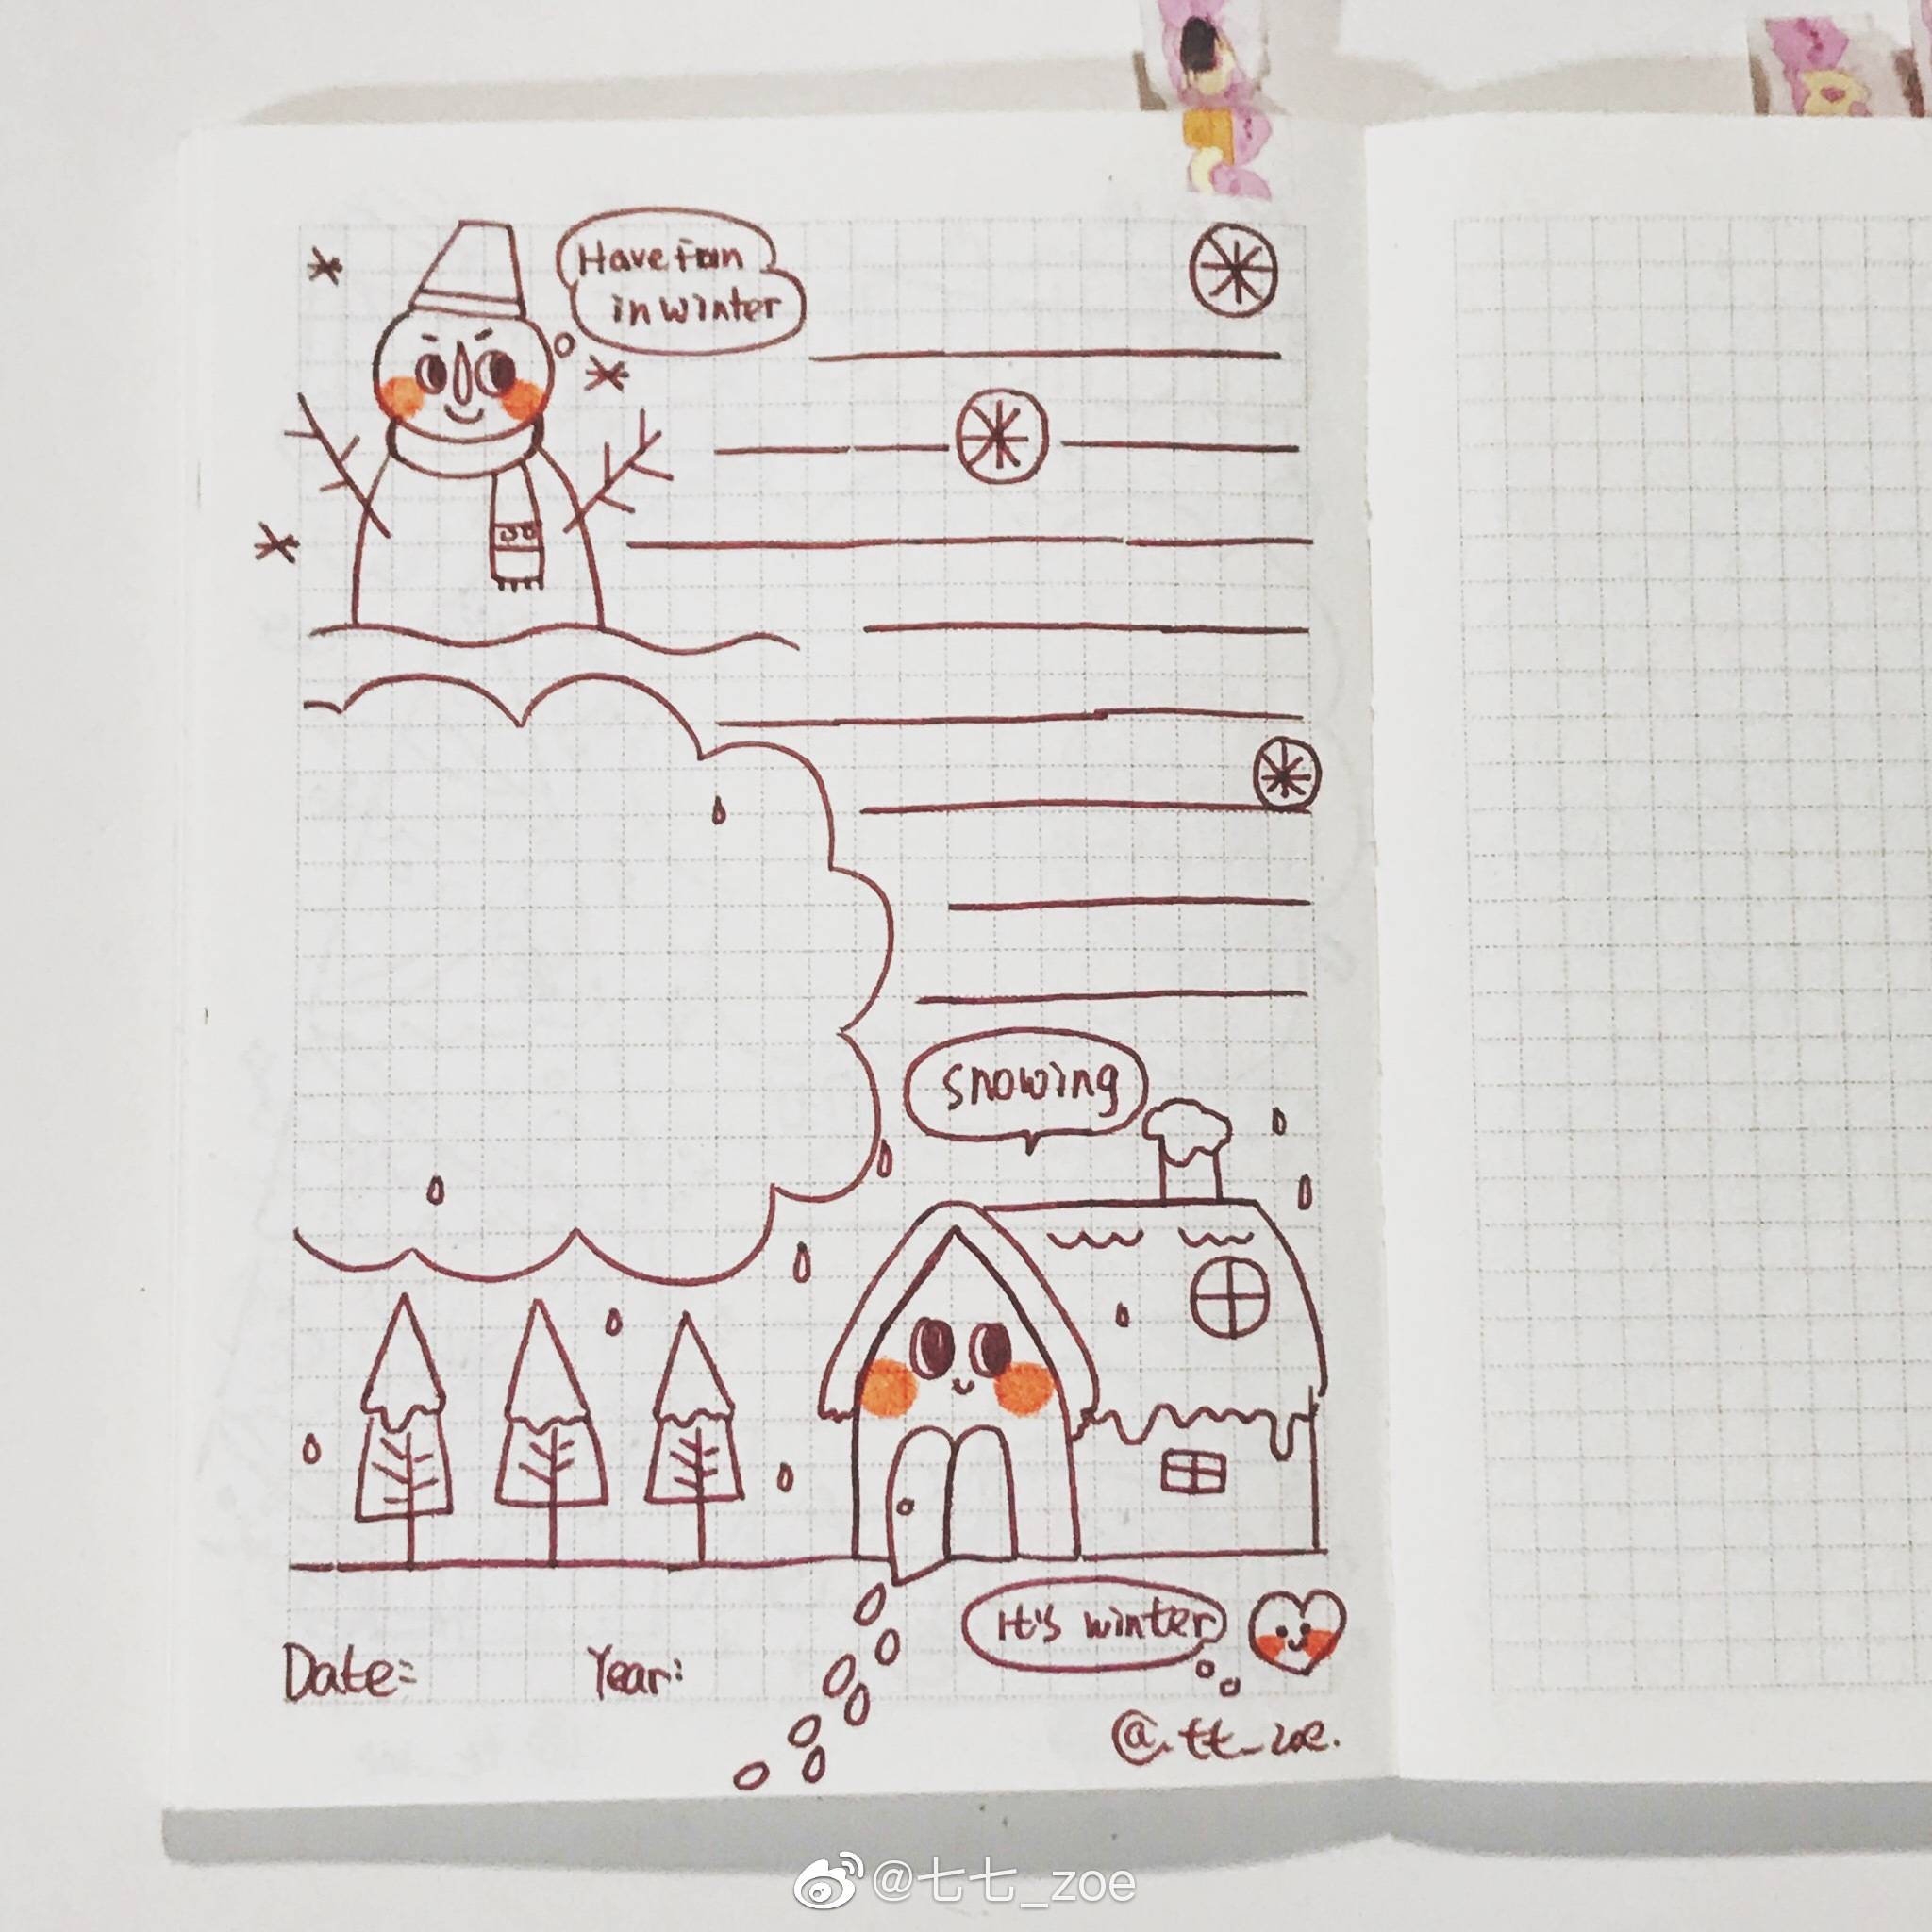 Have fun
in winter
snowing
It's winter
Date:
Year:
@.tt_zoe.
@七七_zoe